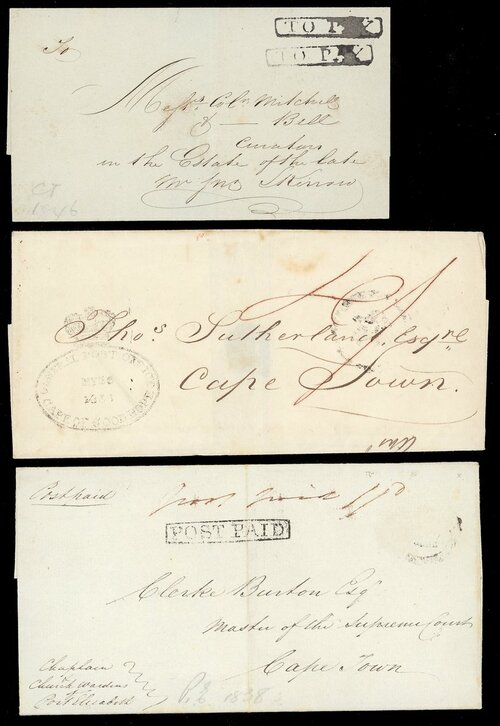 TO PAY
TO PAY
To
Messrs Coln Mitchell
& — Bell
Curators
in the Estate of the late
Mr Jno Skirrow
CT
1846
Thos Sutherland Esqre
Cape Town.
GENERAL POST OFFICE
CAPE OF GOOD HOPE
Post paid
POST PAID
Clerke Burton Esqr
Master of the Supreme Court
Cape Town
Chaplain
Church wardens
Port Elizabeth
P.E 1838